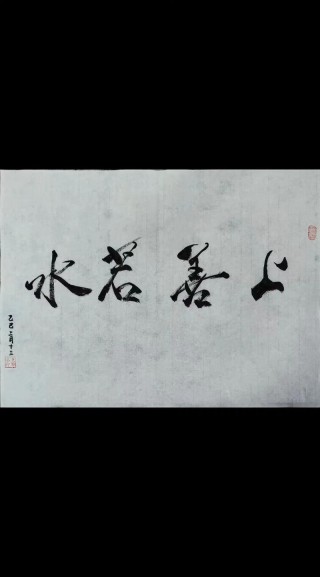 上善若水
乙巳三月十二